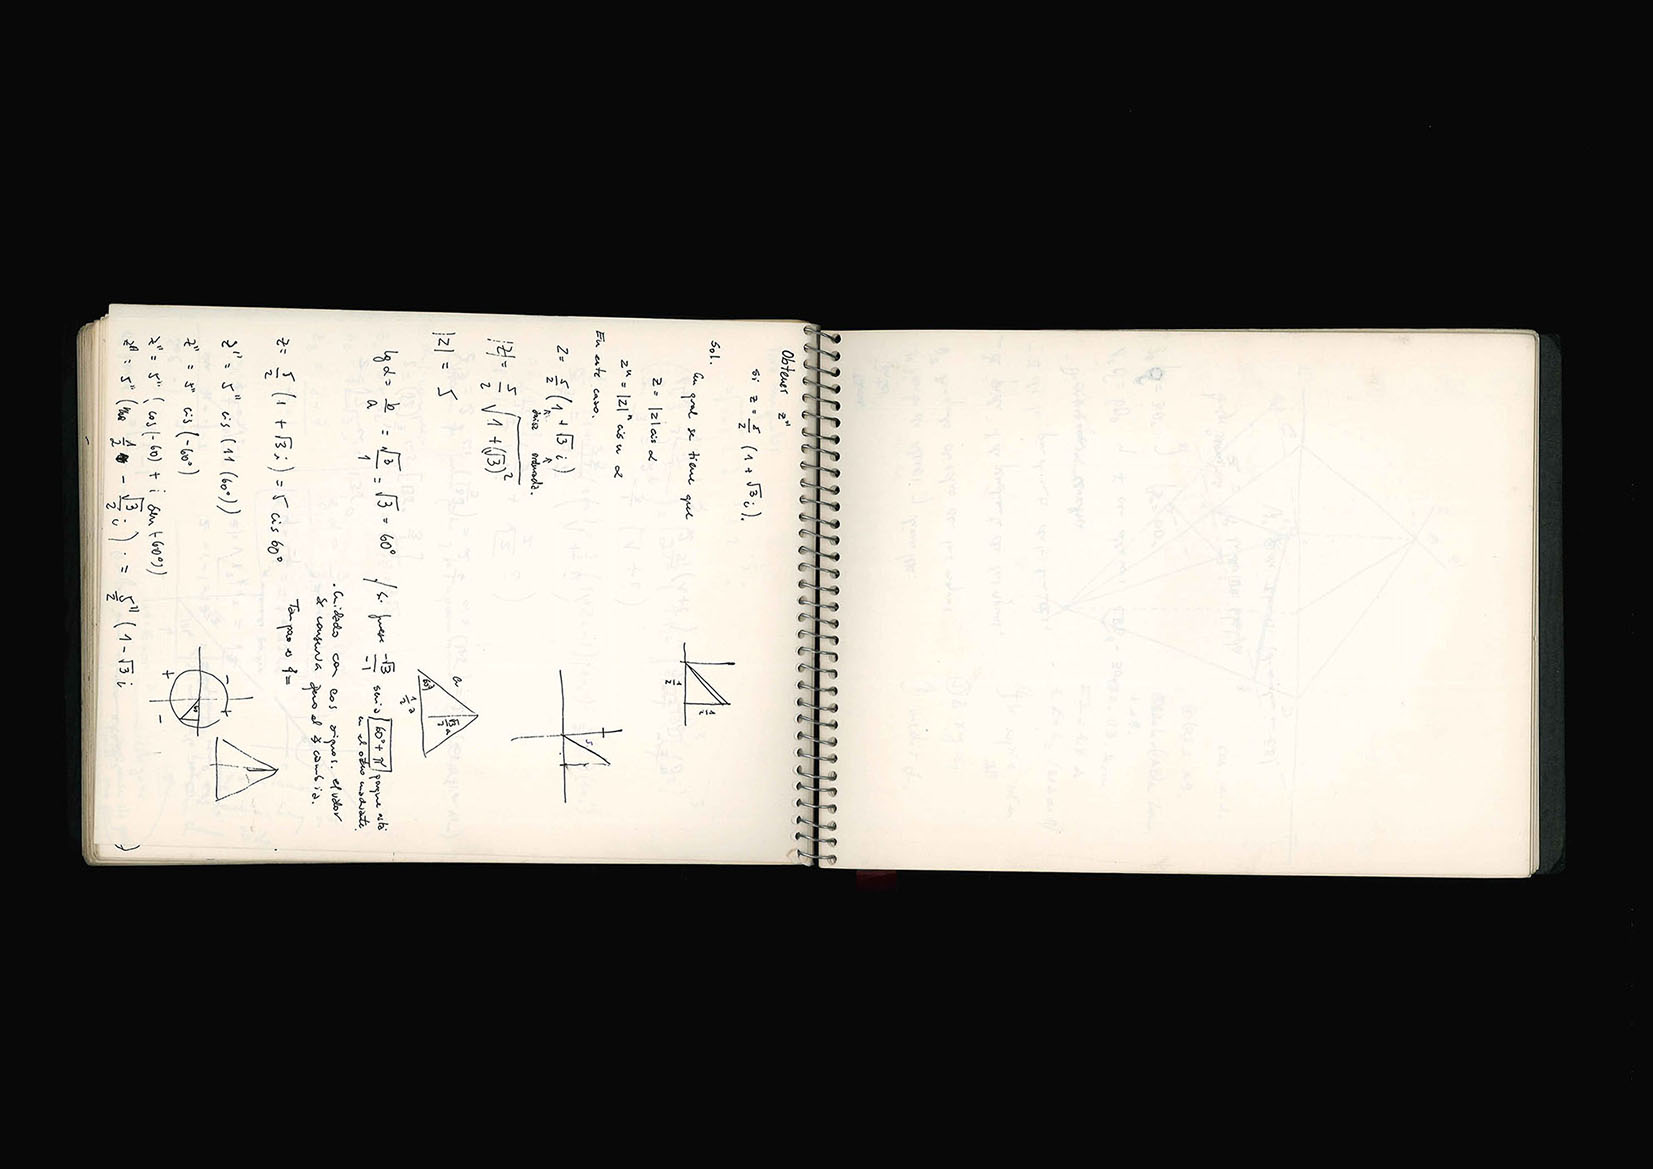 Obtener z¹¹
si z = 5/2 (1 + √3 i).
Sol. En gral se tiene que
z = |z| cis α
zⁿ = |z|ⁿ cis n α
En este caso.
z = 5/2 (1 + √3 i)
ordenada.
|z| = 5/2 √(1 + (√3)²)
|z| = 5
tg α = b/a = √3/1 = √3 = 60° / si fuese -√3/-1 sería 60° + π porque está
en el otro cuadrante.
. Cuidado con los signos. el valor
se conserva pero el ∢ cambia.
z = 5/2 (1 + √3 i) = 5 cis 60°
z¹¹ = 5¹¹ cis (11 (60°))
z¹¹ = 5¹¹ cis (-60°)
z¹¹ = 5¹¹ (cos (-60) + i sen (-60°))
z¹¹ = 5¹¹ (1/2 - √3/2 i) . = 5¹¹/2 (1 - √3 i)
1/2
1/2
5
a
60
√3/2 a
1/2 a
+
-
+
-